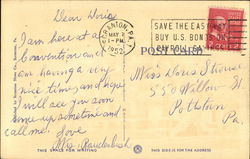 Dear Doris
I am here at a
Convention and
am having a very
nice time and hope
I will see you soon
come up sometime and
call me. Love
Mrs.
PA.
MAY
1 - PM
1952
SAVE THE EASY WAY
BUY U.S. BONDS
PAYROLL SAVINGS
POST CARD
Miss Doris
550 Willow St
Pottstown
Pa.
THIS SPACE FOR WRITING
THIS SIDE IS FOR THE ADDRESS